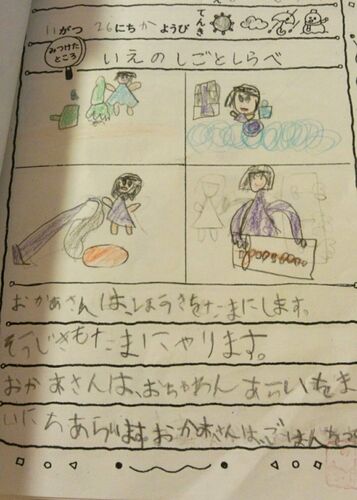 11がつ 26にち か ようび てんき
みつけたところ
いえのしごとしらべ
おかあさんは、ほうきをたまにします。
そうじきもたまにやります。
おかあさんは、おちゃわんあらいをま
いにちあらいます。おかあさんは、ごはんを